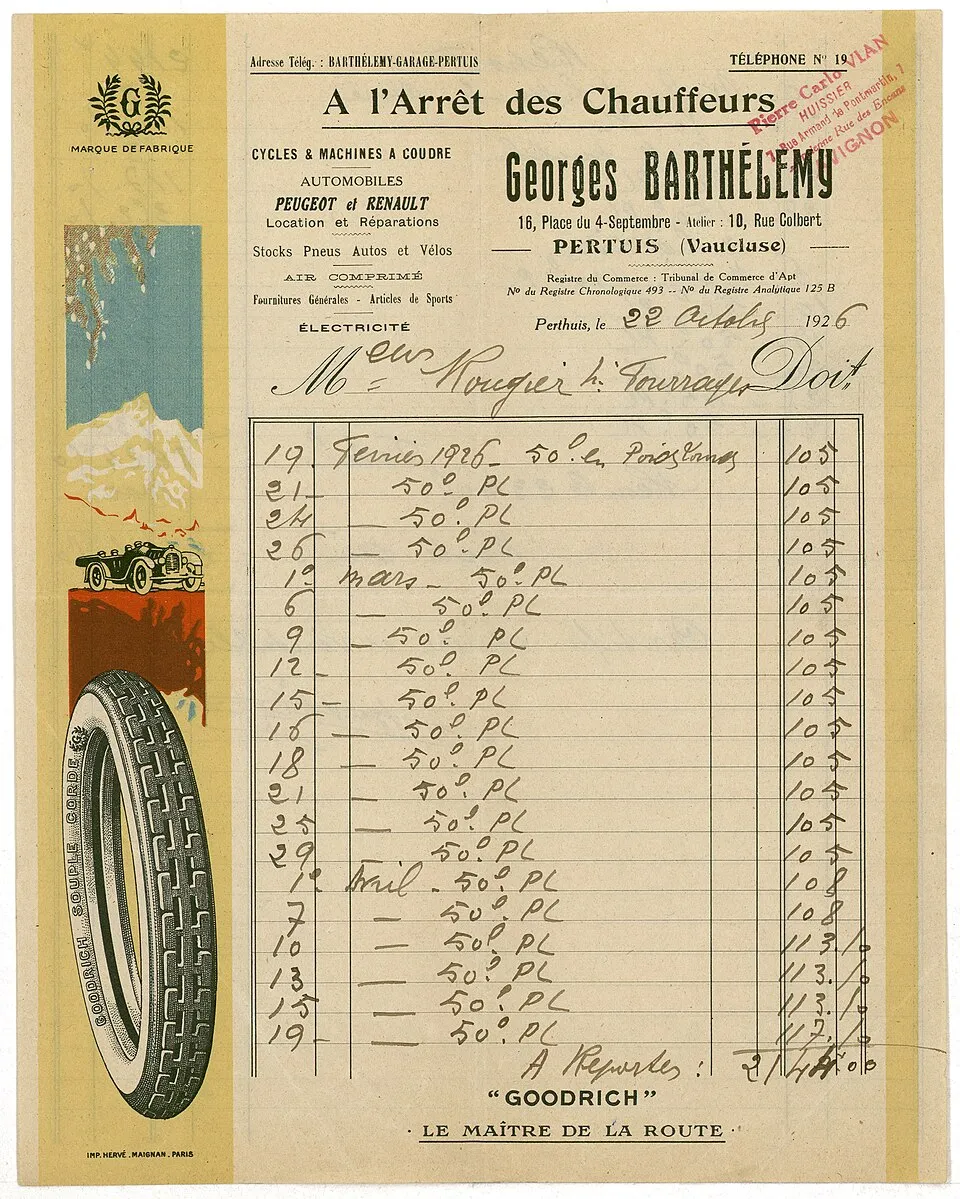 Adresse Télég. : BARTHÉLEMY-GARAGE-PERTUIS
TÉLÉPHONE N° 19
A l'Arrêt des Chauffeurs
Pierre Carlo VIAN
HUISSIER
7, Rue Armand de Pontmartin, 7
Rue des Encans
AVIGNON
G
MARQUE DE FABRIQUE
CYCLES & MACHINES A COUDRE
AUTOMOBILES
PEUGEOT et RENAULT
Location et Réparations
Stocks Pneus Autos et Vélos
AIR COMPRIMÉ
Fournitures Générales - Articles de Sports
ÉLECTRICITÉ
Georges BARTHÉLEMY
16, Place du 4-Septembre - Atelier : 10, Rue Colbert
PERTUIS (Vaucluse)
Registre du Commerce : Tribunal de Commerce d'Apt
N° du Registre Chronologique 493 -- N° du Registre Analytique 125 B
Perthuis, le 22 Octobre 1926
Meur Rougier Fourrages Doit
19. Février 1926 - 50l. en Poids 105
21 - 50l. PL 105
24 — 50l. PL 105
26 — 50l. PL 105
1° mars - 50l. PL 105
6 — 50l. PL 105
9 — 50l. PL 105
12 — 50l. PL 105
15 — 50l. PL 105
16 — 50l. PL 105
18 — 50l. PL 105
21 — 50l. PL 105
25 — 50l. PL 105
29 — 50l. PL 105
1° Avril - 50l. PL 108
7 — 50l. PL 108
10 — 50l. PL 113.10
13 — 50l. PL 113.10
15 — 50l. PL 113.10
19 — 50l. PL 117.10
A Reporter : 2144.00
GOODRICH SOUPLE CORDE
"GOODRICH"
· LE MAÎTRE DE LA ROUTE ·
IMP. HERVÉ. MAIGNAN. PARIS